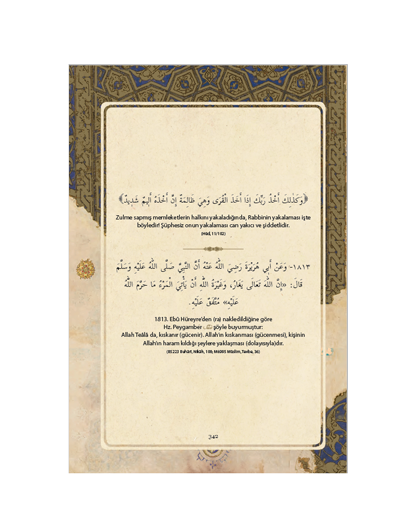 ﴿وَكَذَلِكَ أَخْذُ رَبِّكَ إِذَا أَخَذَ الْقُرَى وَهِيَ ظَالِمَةٌ إِنَّ أَخْذَهُ أَلِيمٌ شَدِيدٌ﴾
Zulme sapmış memleketlerin halkını yakaladığında, Rabbinin yakalaması işte
böyledir! Şüphesiz onun yakalaması can yakıcı ve şiddetlidir.
(Hûd, 11/102)
١٨١٣- وَعَنْ أَبِي هُرَيْرَةَ رَضِيَ اللَّهُ عَنْهُ أَنَّ النَّبِيَّ صَلَّى اللَّهُ عَلَيْهِ وَسَلَّمَ
قَالَ: «إِنَّ اللَّهَ تَعَالَى يَغَارُ، وَغَيْرَةُ اللَّهِ أَنْ يَأْتِيَ الْمَرْءُ مَا حَرَّمَ اللَّهُ
عَلَيْهِ» مُتَّفَقٌ عَلَيْهِ.
1813. Ebû Hüreyre'den (ra) nakledildiğine göre
Hz. Peygamber ﷺ şöyle buyurmuştur:
Allah Teâlâ da, kıskanır (gücenir). Allah'ın kıskanması (gücenmesi), kişinin
Allah'ın haram kıldığı şeylere yaklaşması (dolayısıyla)dır.
(B5223 Buhârî, Nikâh, 108; M6995 Müslim, Tevbe, 36)